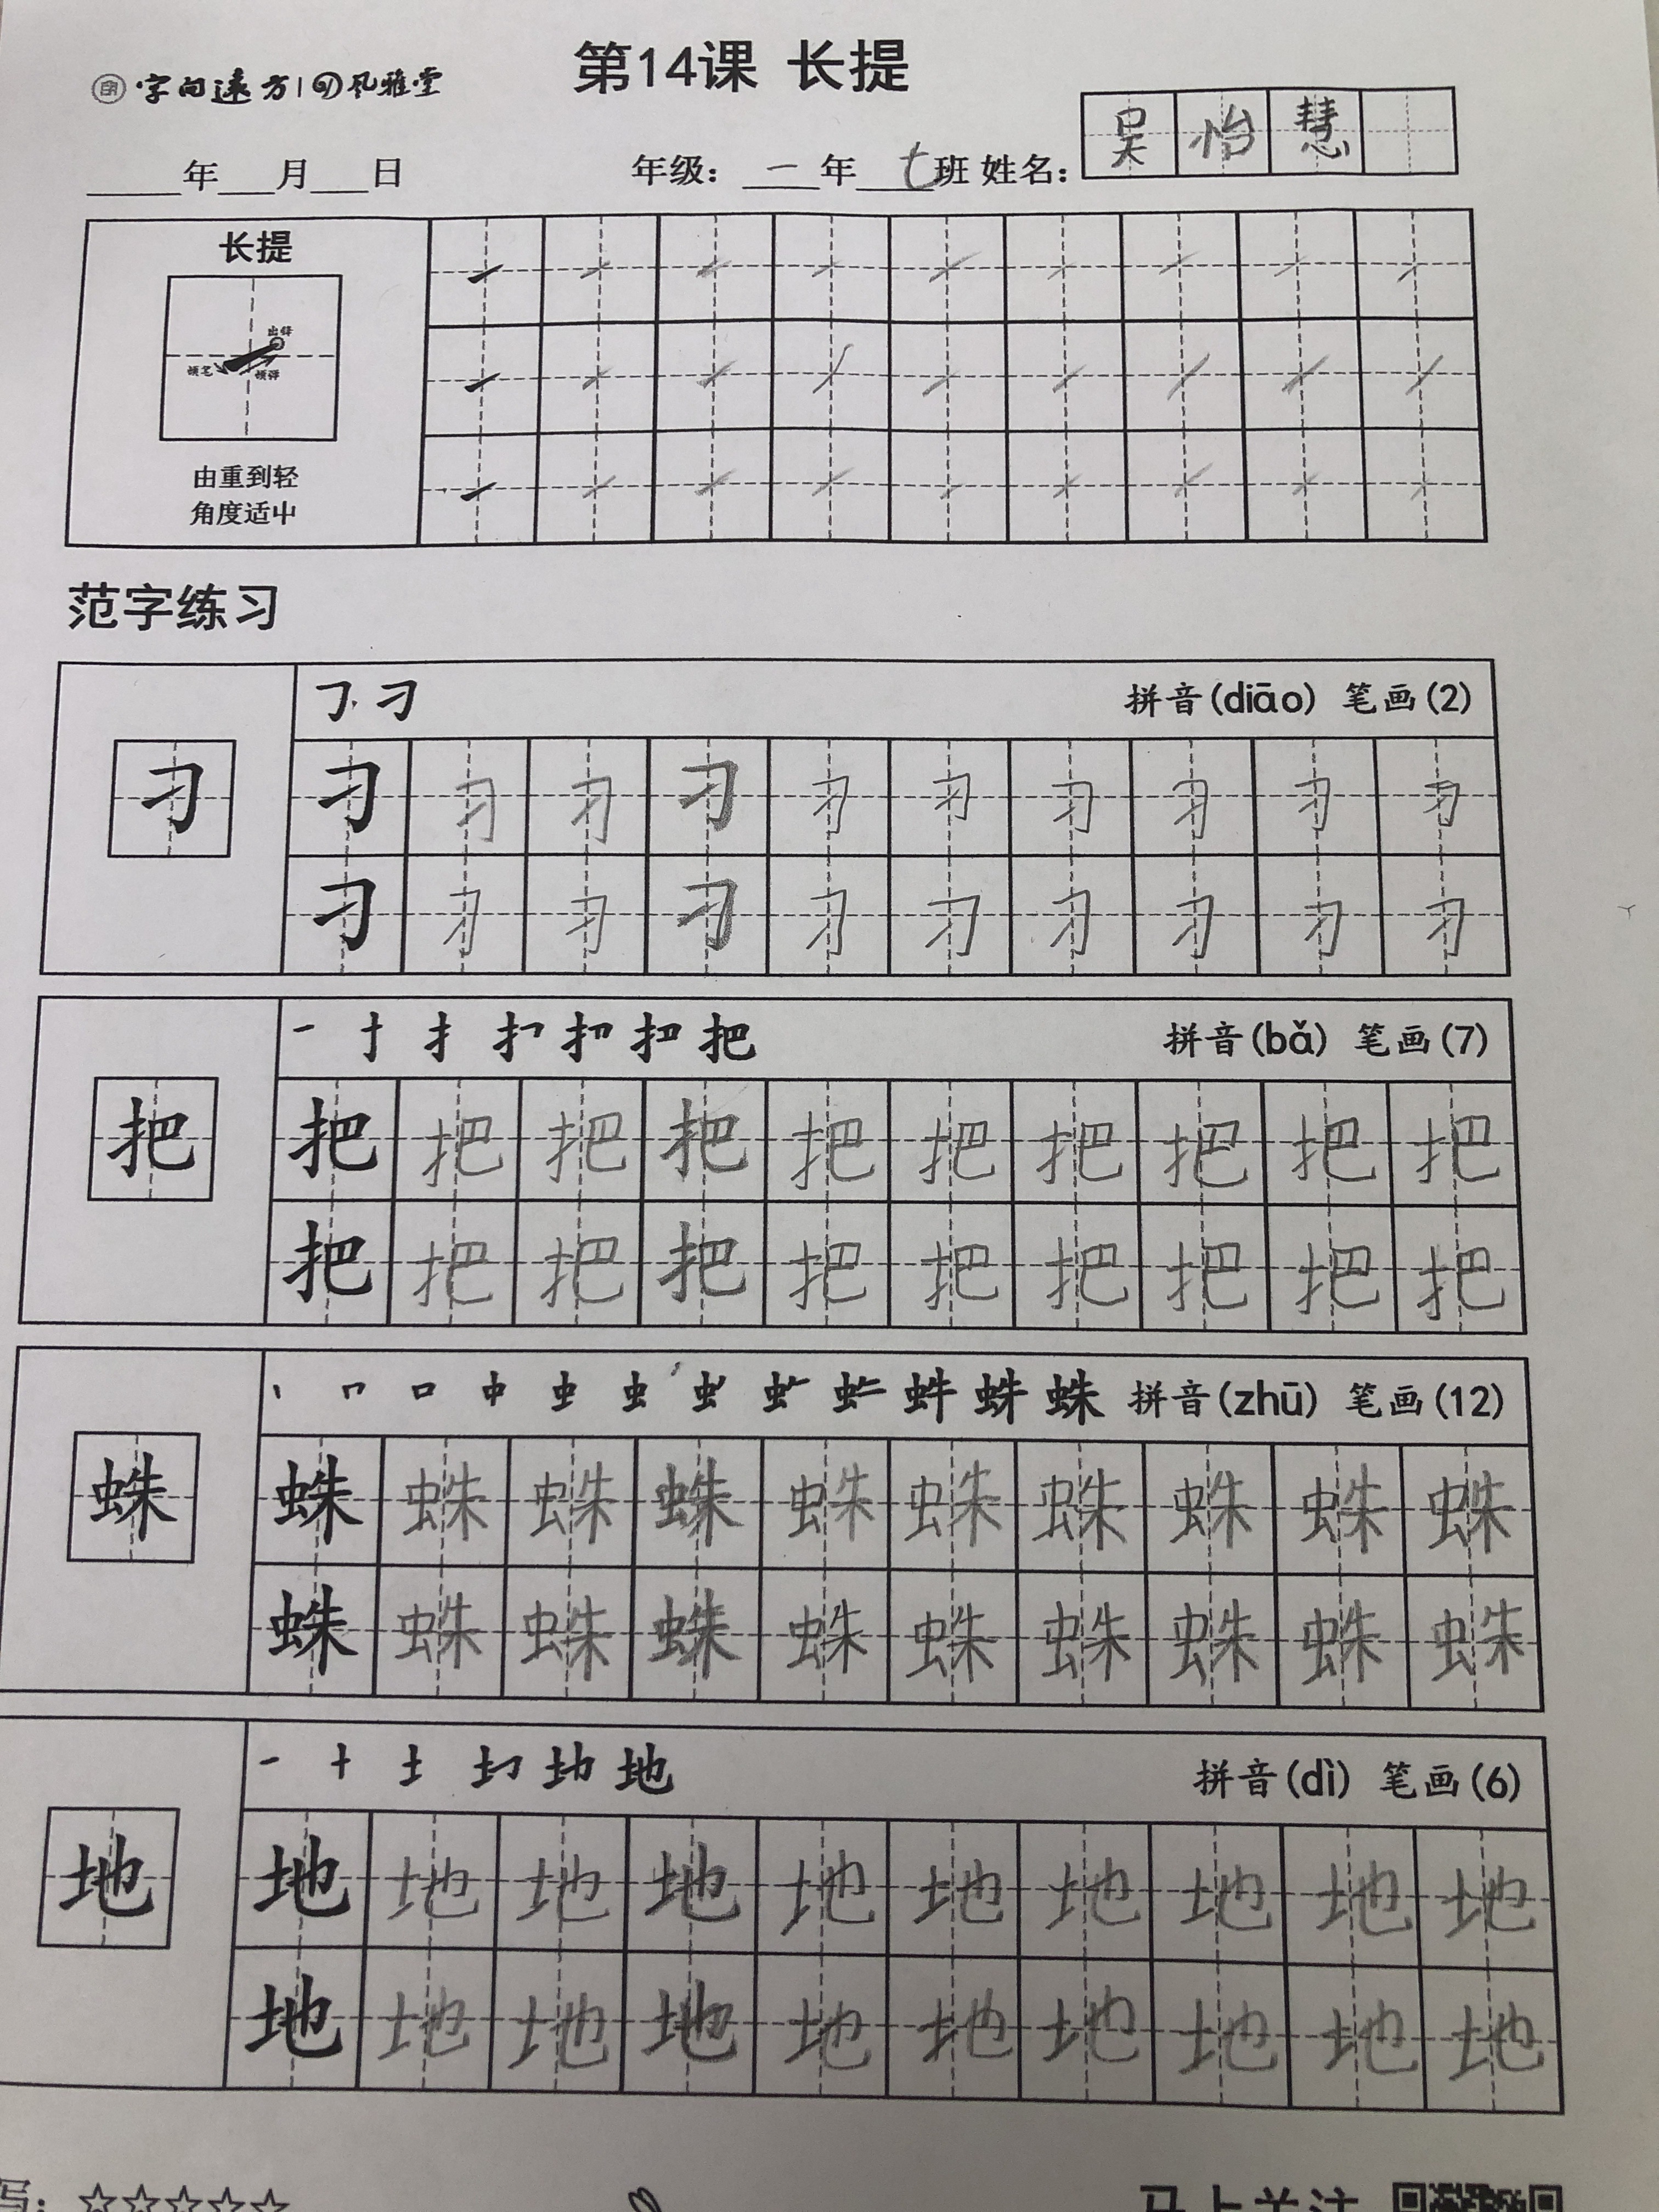 字向遠方 风雅堂
第14课 长提
年 月 日 年级: 一年 七班 姓名: 吴怡慧
长提
出锋
顿笔
由重到轻
角度适中
范字练习
㇆ 刁 拼音(diāo) 笔画(2)
刁 刁 刁 刁 刁 刁 刁 刁 刁 刁 刁
刁 刁 刁 刁 刁 刁 刁 刁 刁 刁
把 拼音(bǎ) 笔画(7)
把 把 把 把 把 把 把 把 把 把 把
把 把 把 把 把 把 把 把 把 把
蛛 拼音(zhū) 笔画(12)
蛛 蛛 蛛 蛛 蛛 蛛 蛛 蛛 蛛 蛛 蛛
蛛 蛛 蛛 蛛 蛛 蛛 蛛 蛛 蛛 蛛
地 拼音(dì) 笔画(6)
地 地 地 地 地 地 地 地 地 地 地
地 地 地 地 地 地 地 地 地 地
写: ☆☆☆☆☆ 马上关注